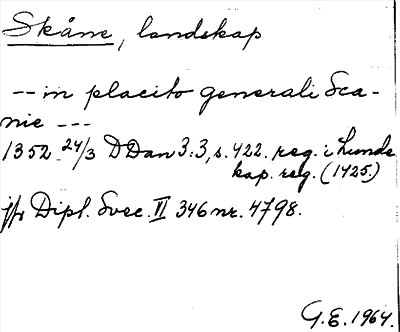 Skåne, landskap
-- in placito generali Sca-
nie ---
1352 24/3 DDan 3:3, s. 422. reg. i Lunds
kap. reg. (1425.)
jfr Dipl. Svec. VI 346 nr. 4798.
G.E. 1964.